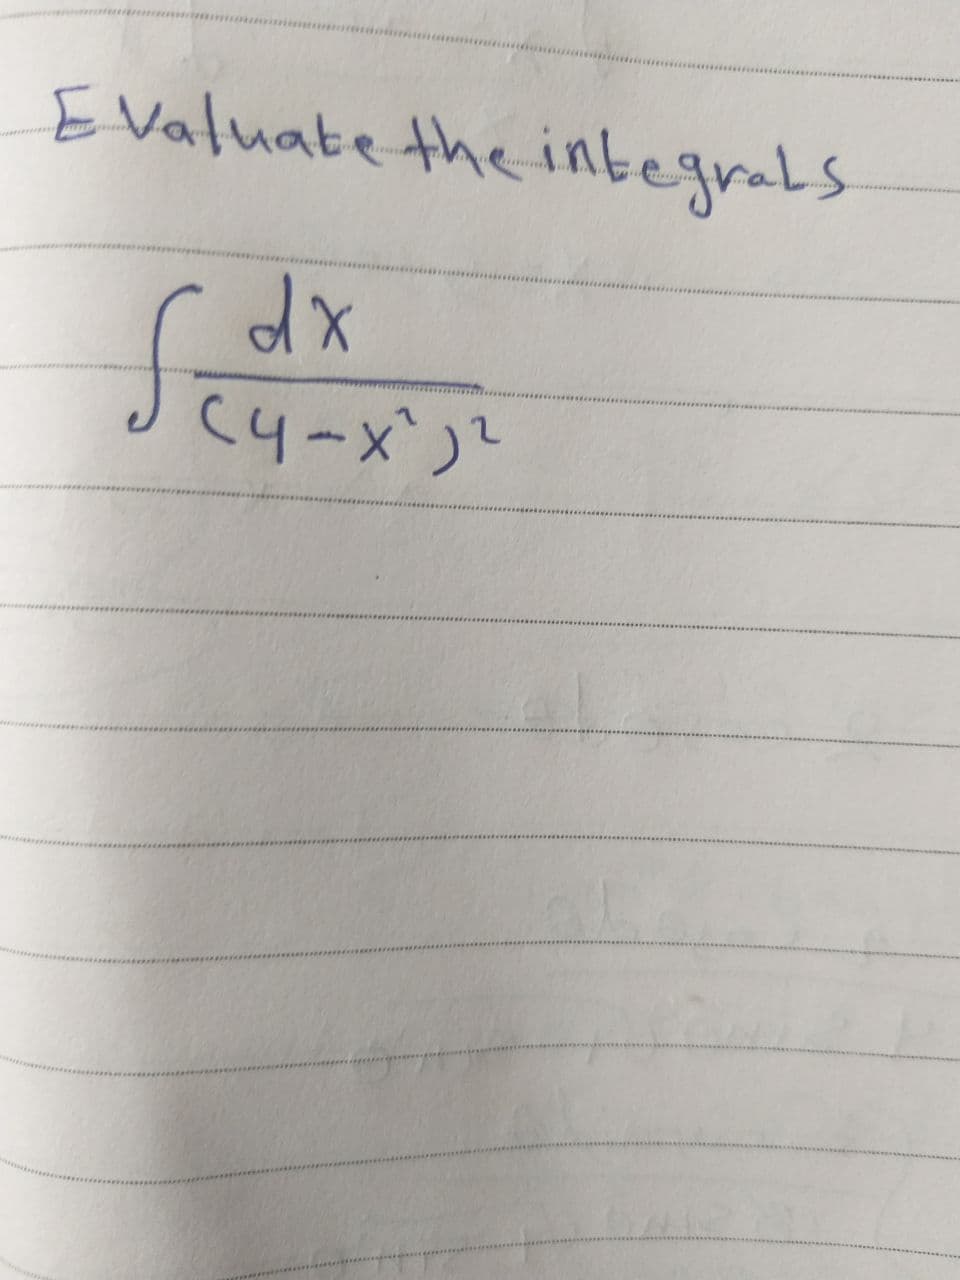 Evaluate the integrals
∫ dx
(4-x²)²